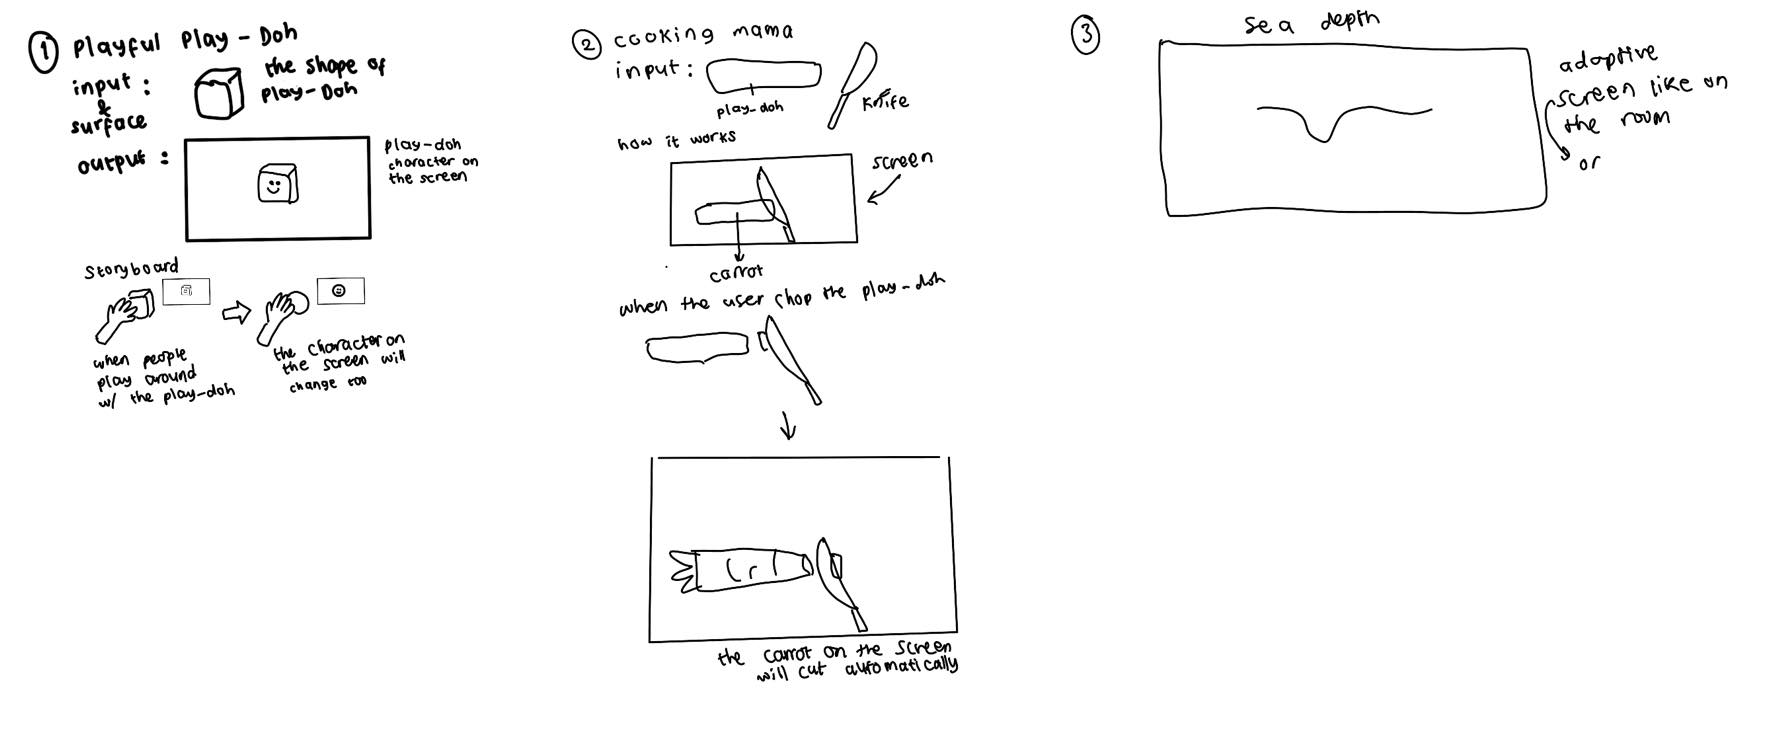 1 Playful Play-Doh
input :
&
surface
the shape of
Play-Doh
output :
play-doh
character on
the screen
Storyboard
when people
play around
w/ the play-doh
the character on
the screen will
change too
2 cooking mama
input :
play-doh
Knife
how it works
screen
carrot
when the user chop the play-doh
the carrot on the screen
will cut automatically
3
sea depth
adaptive
screen like on
the room
or